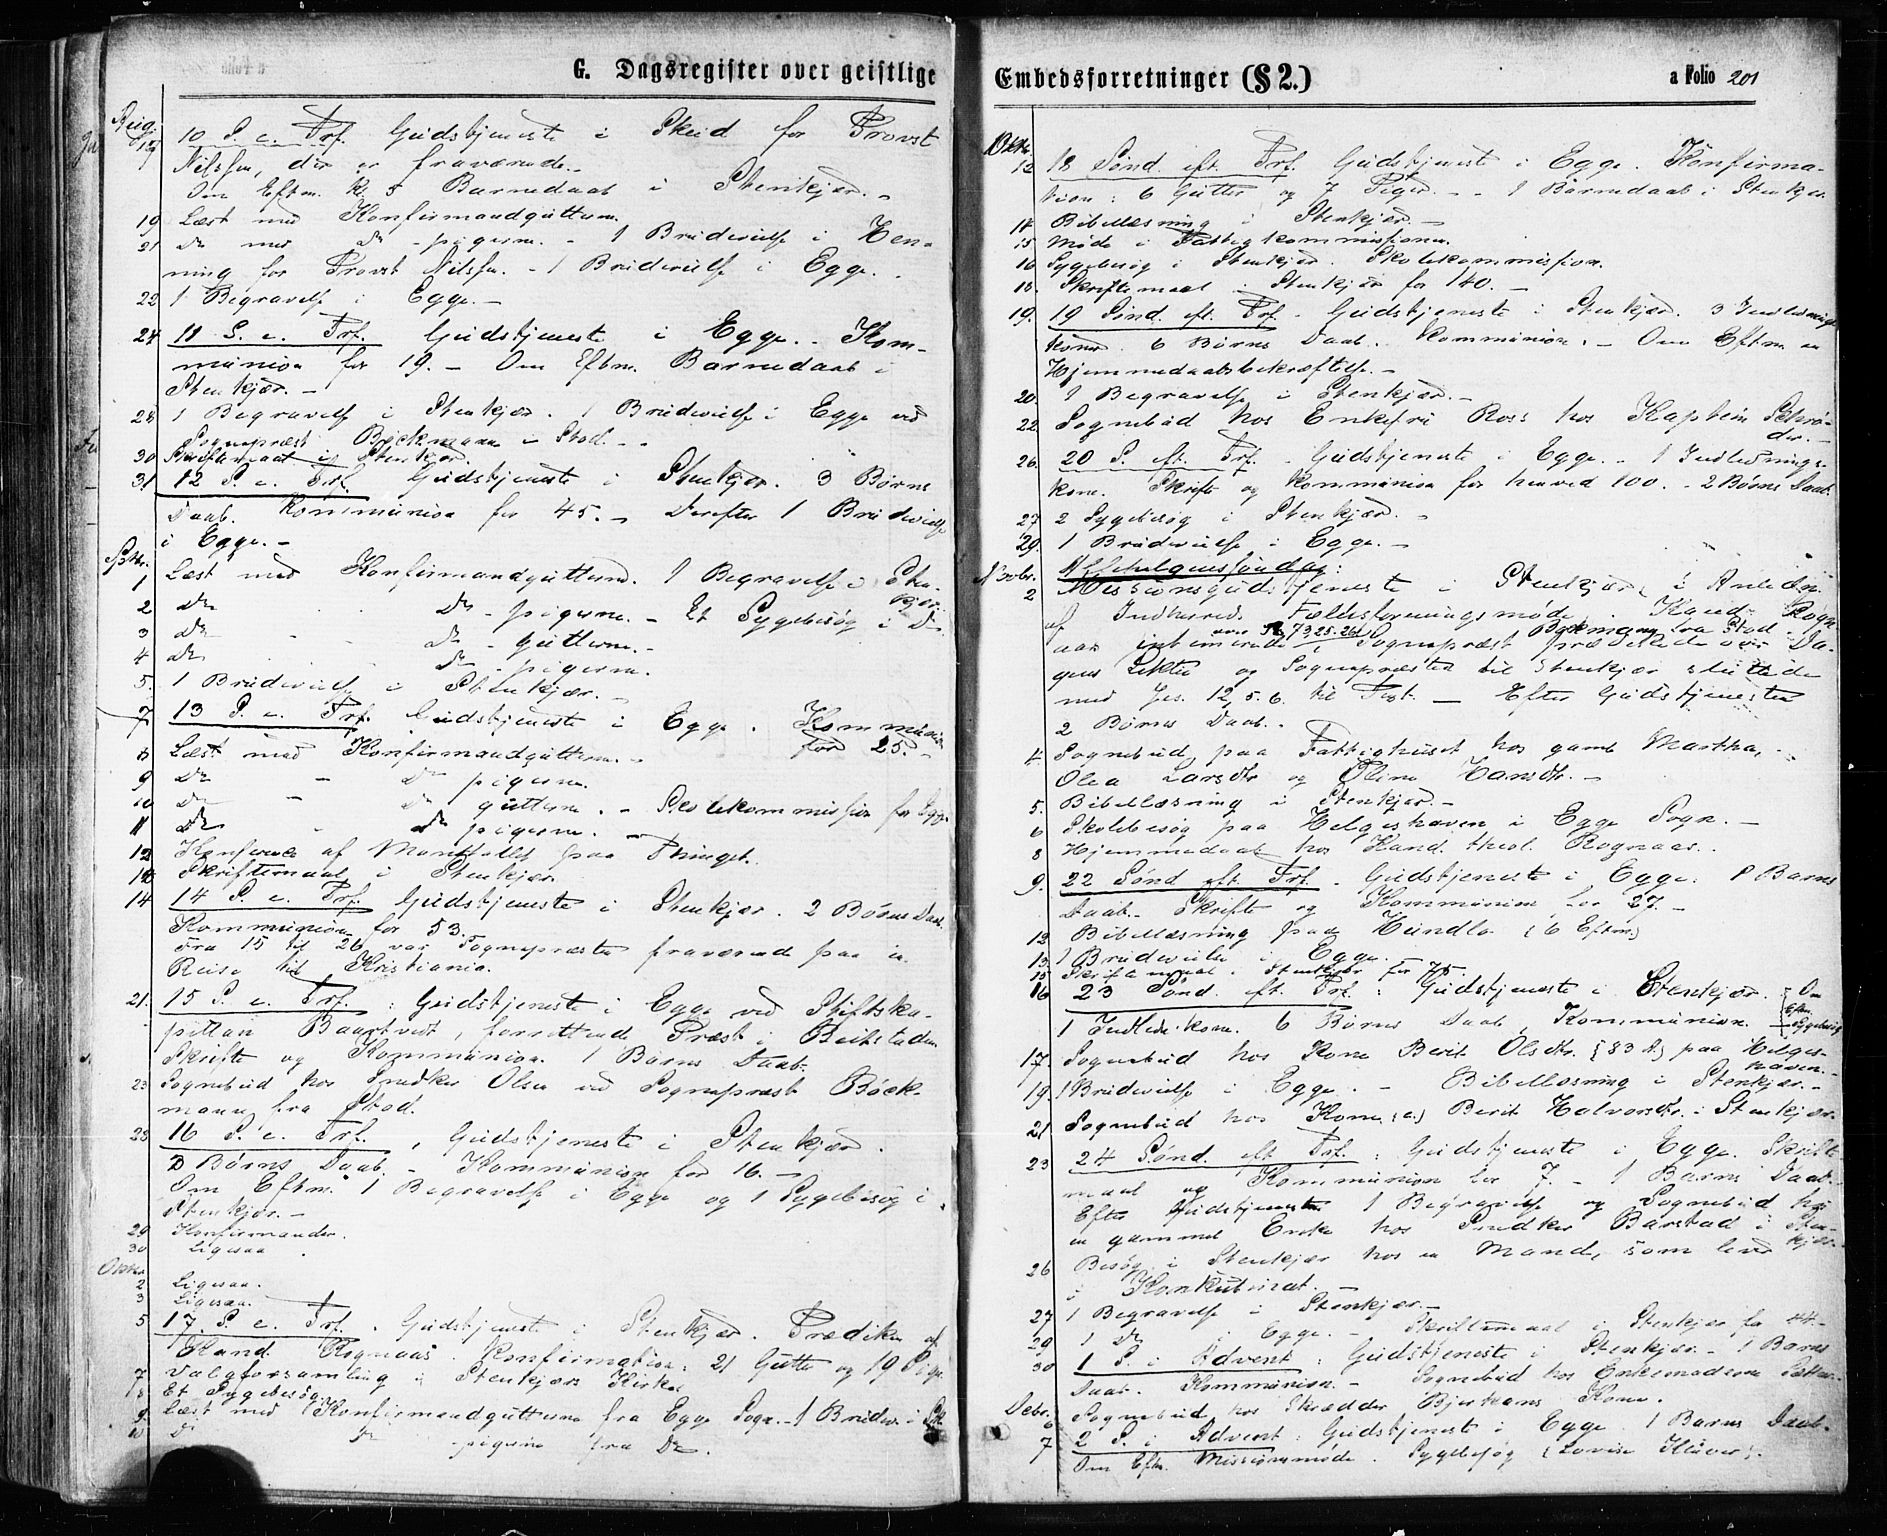 G. Dagsregister over geistlige
Aug.
17 10 S. e. Trf. Gudstjeneste i Skeid for Provst
Nilssen, der er fraværende.
Om Eftm. kl. 5 Barnedaab i Stenkjær. –
19 Læst med Konfirmandgutterne.
21 Do med Do - pigerne. – 1 Brudevielse i Hen-
ning for Provst Nilssen. – 1 Brudevielse i Egge. –
22 1 Begravelse i Egge. –
24 11 S. e. Trf. Gudstjeneste i Egge. – Kom-
munion for 19. – Om Eftm. Barnedaab i
Stenkjær. –
28 1 Begravelse i Stenkjær. 1 Brudevielse i Egge ved
Sognepræst Böckmann i Stod. –
30 Skriftemaal i Stenkjær.
31 12 S. e. Trf. Gudstjeneste i Stenkjær. 3 Børns
Daab. Kommunion for 45. – Derefter 1 Brudevielse
i Egge. –
Sptbr.
1 Læst med Konfirmandgutterne. 1 Begravelse i Sten-
kjær.
2 Do Do - pigerne. – Et Sygebesøg i Do
3 Do - - Do - gutterne. –
4 Do Do - pigerne.
5. 1 Brudevielse i Stenkjær. –
7 13 S. e. Trf. Gudstjeneste i Egge. Kommunion
for 25. –
8 Læst med Konfirmandgutterne. –
9 Do - Do pigerne.
10 Do - Do gutterne. – Skolekommission for Egge
11 Do - Do pigerne. –
12 Konferens af Manntallet paa Thinget.
13 Skriftemaal i Stenkjær.
14 14 S. e. Trf. Gudstjeneste i Stenkjær. 2 Børns Daab.
Kommunion for 53.
Fra 15 til 26 var Sognepræsten fraværende paa en
Reise til Kristiania.
21. 15 S. e. Trf. : Gudstjeneste i Egge ved Stiftska-
pellan Baartvedt, forrettende Præst i Beitstaden
Skrifte og Kommunion. 1 Barns Daab.
23 Sognebud hos Snedker Olsen ved Sognepræst Böck-
mann fra Stod.
28 16 S. e. Trf., Gudstjeneste i Stenkjær.
2 Børns Daab. – Kommunion for 16. –
Om Eftm. 1 Begravelse i Egge og 1 Sygebesøg i
Stenkjær. –
29 Konfirmander.
30 Ligesaa.
Oktbr.
2 Ligesaa.
3 Ligesaa.
5 17 S. e. Trf. Gudstjeneste i Stenkjær. Prædiken af
Kand. Rognaas. Konfirmation: 21 Gutter og 19 Piger
7 Valgforsamling i Stenkjærs Kirke
8 Et Sygebesøg
9 Læst med Konfirmandgutterne fra Egge Sogn. – 1 Brudev. i Stk
10 Do Do - pigerne fra Do.
Embedsforretninger (§ 2.) a Folio 201
Oktbr.
12 18 Sønd. eft. Trf. Gudstjeneste i Egge. Konfirma-
tion: 6 Gutter og 7 Piger. – 1 Barnedaab i Stenkjær
14 Bibellæsning i Stenkjær. –
15 Møde i Fattigkommissionen.
16 Sygebesøg i Stenkjær. Skolekommission.
18. Skriftemaal i Stenkjær for 140. –
19. 19 Sønd. eft. Trf. Gudstjeneste i Stenkjær. 3 Indlednings-
koner. 6 Børns Daab. Kommunion. – Om Eftm. en
Hjemmedaabsbekræftelse. –
20. 1 Begravelse i Stenkjær. –
22. Sognebud hos Enkefru Ross hos Kaptein Schrø-
der. –
26. 20 S. eft. Trf. Gudstjeneste i Egge. – 1 Indlednings-
kone. Skrifte og Kommunion for henved 100. – 2 Børns Daab.
27 2 Sygebesøg i Stenkjær. –
29. 1 Brudevielse i Egge. –
Novbr. Allehelgenssøndag:
2 Missionsgudstjeneste i Stenkjær i Anledn.
af Indherreds Fællesforeningsmøde. Kand. Rogn-
aas intimerede over Ps. 73,25.26, Sognepræst Bøckmann fra Stod prædikede over Da-
gens Lektie og Sognepræsten til Stenkjær sluttede
med Jes. 12, 5. 6. til Text. – Efter Gudstjenesten
2 Børns Daab. –
4 Sognebud paa Fattighuset hos gamle Martha,
Olea Larsdtr og Oline Hansdtr. –
5. Bibellæsning i Stenkjær. –
6 Skolebesøg paa Helgeshaven i Egge Sogn. –
8 Hjemmedaab hos Kand. theol. Rognaas. –
9. 22 Sønd. eft. Trf. Gudstjeneste i Egge. 1 Barns
Daab. – Skrifte og Kommunion for 27. –
12 Bibellæsning paa Hundlo (6 Eftm)
13. 1 Brudevielse i Egge.
15 Skriftemaal i Stenkjær for 75.
16 23 Sønd. eft. Trf. : Gudstjeneste i Stenkjær. – Om
Eftm.
1 Indled.kone. 6 Børns Daab. Kommunion. – Sygebesøg
17. Sognebud hos Kone Berit Olsdtr. (83 A.) paa Helges-
haven. –
19. 1 Brudevielse i Egge. – Bibellæsning i Stenkjær. –
21 Sognebud hos Kone Berit Halvorsdtr. i Stenkjær.
23 24 Sønd. eft. Trf. : Gudstjeneste i Egge. Skrifte-
maal og Kommunion for 7. – 1 Barns Daab. –
Efter Gudstjenesten 1 Begravelse og Sognebud hos
en gammel Enke hos Snedker Barstad i Sten-
kjær. –
26 Besøg i Stenkjær hos en Mand, som lever
i Konkubinat. –
27 1 Begravelse i Stenkjær. –
29 1 Do i Egge. – Skriftemaal i Stenkjær for 44. –
30 1 S. i Advent : Gudstjeneste i Stenkjær. – 1 Barns
Daab. Kommunion. – Sognebud hos Enkemadame
Debr.
6 Sognebud hos Skrædder Bjerkans Kone.
7 2 S. i Advent : Gudstjeneste i Egge. 1 Barns Daab.
Om Eftm. Missionsmøde. Sygebesøg (Lovise Klüver).